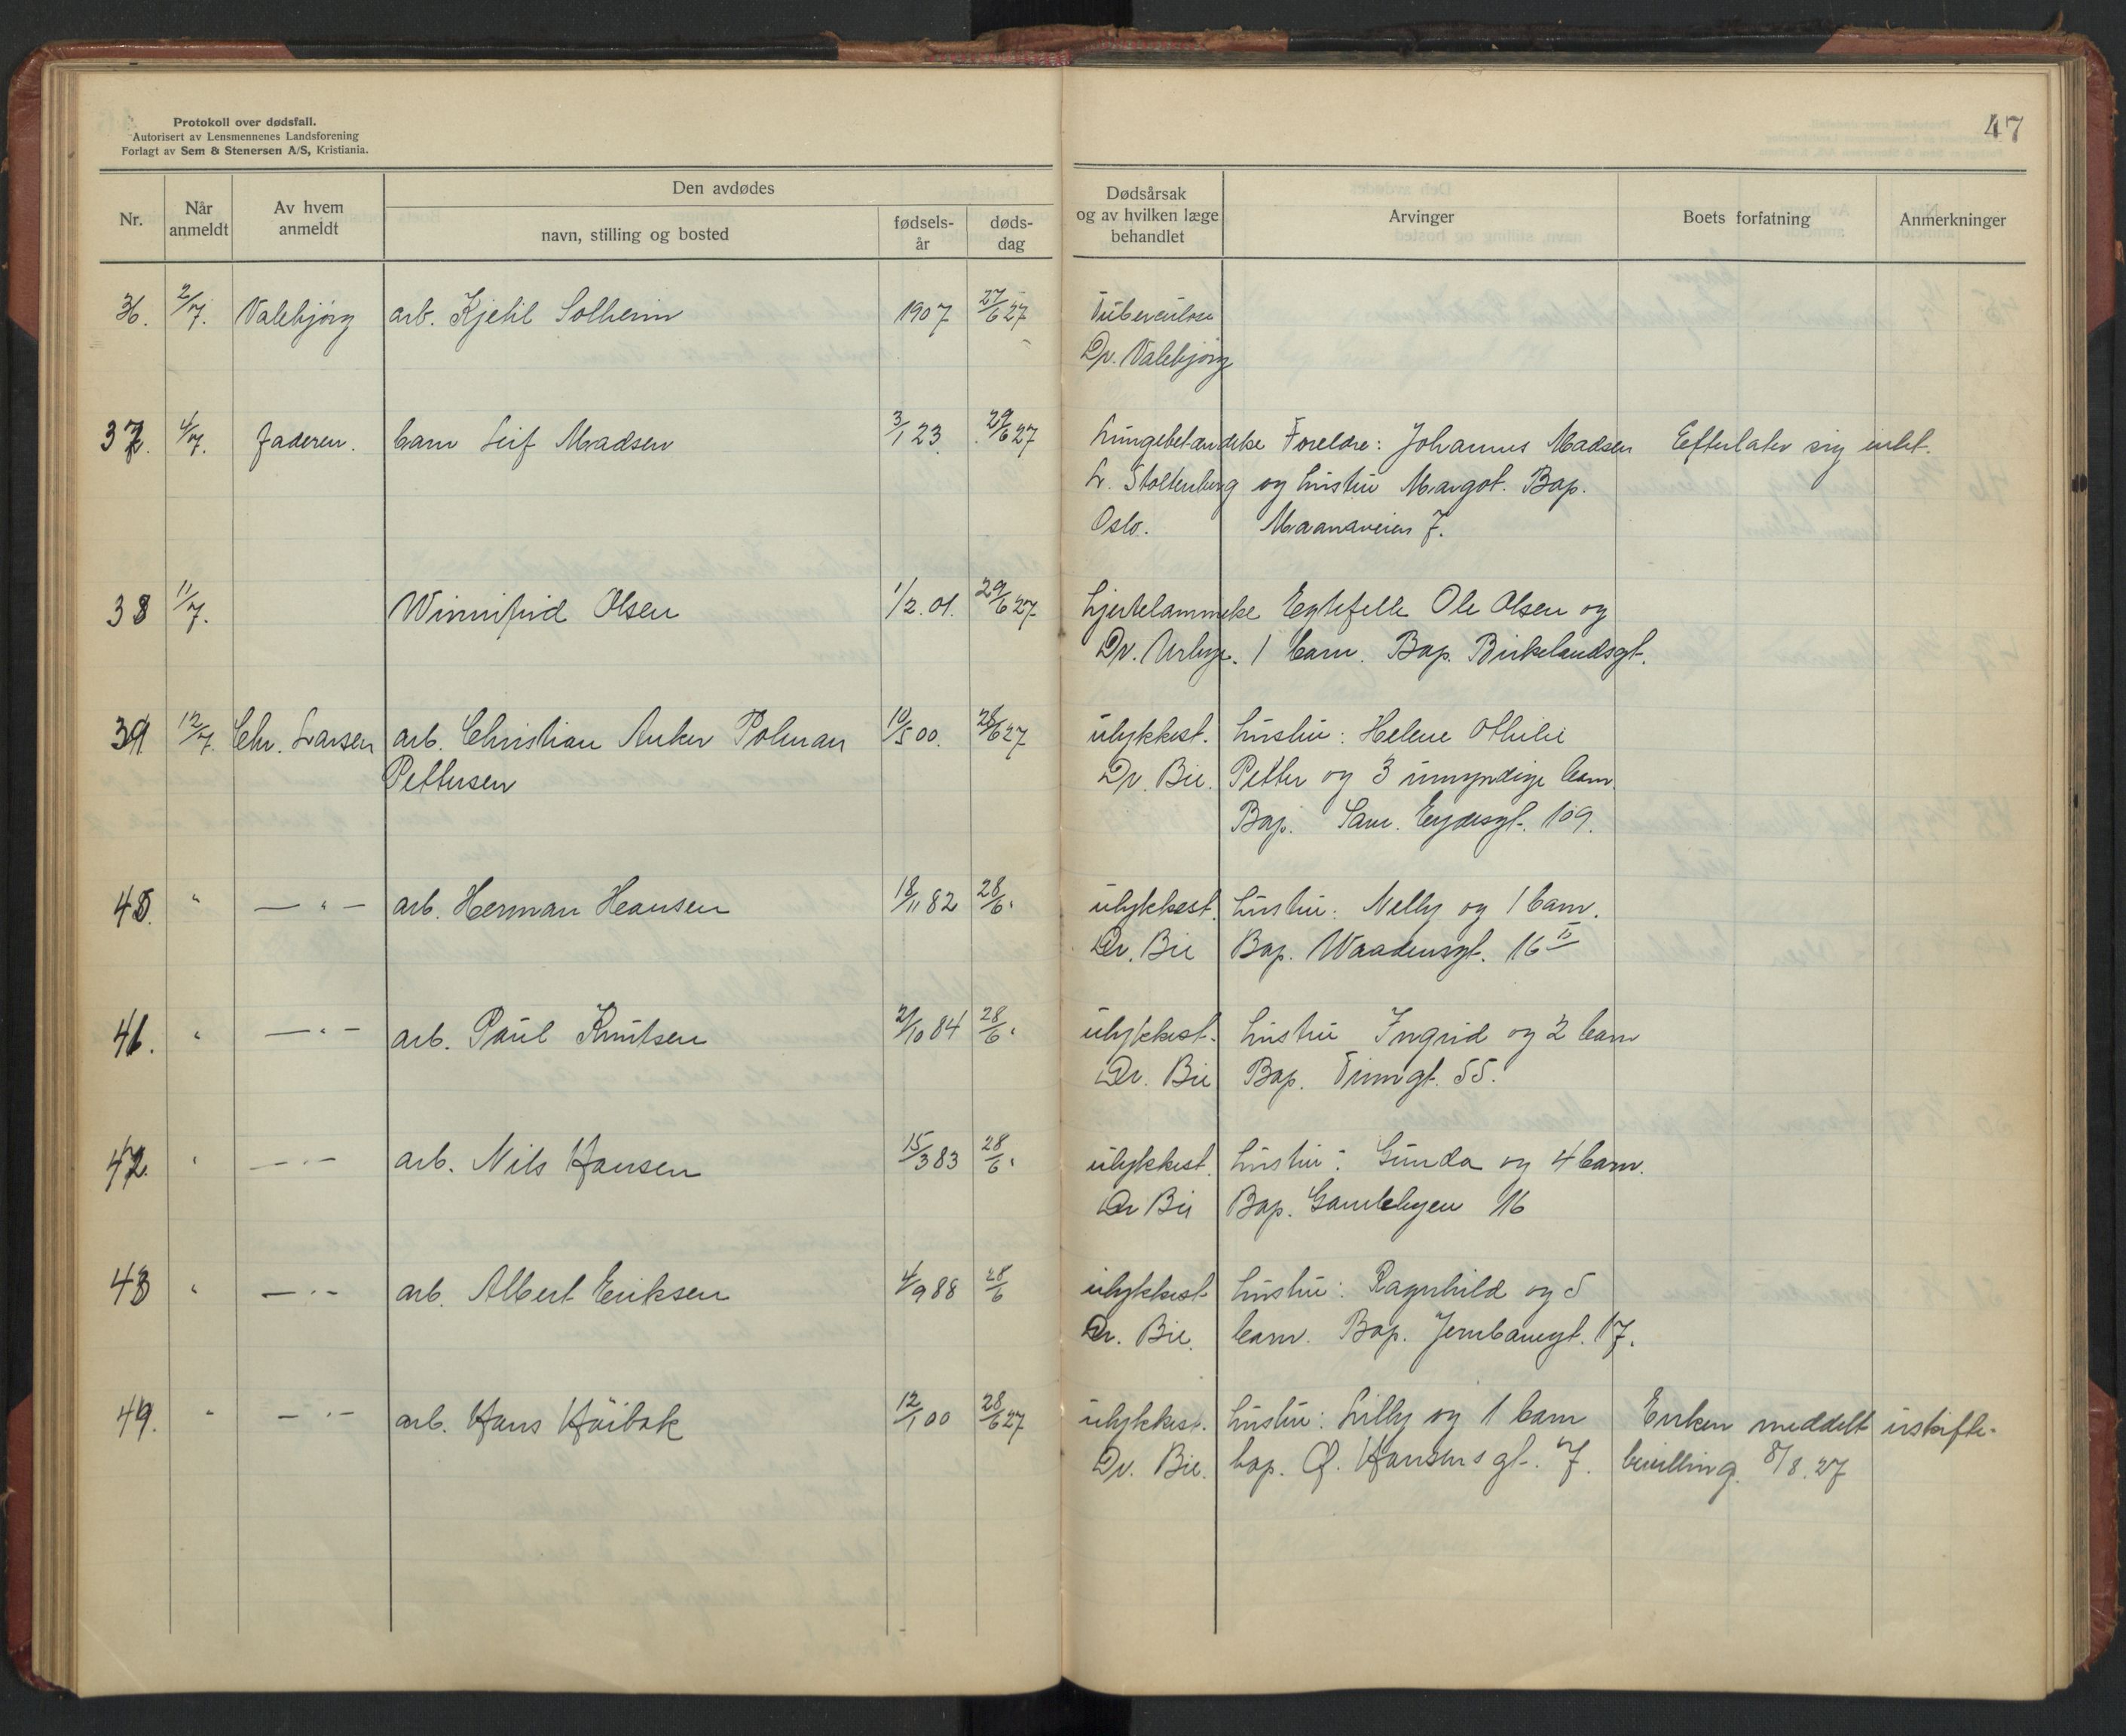 Protokoll over dødsfall.
Autorisert av Lensmennenes Landsforening
Forlagt av Sem & Stenersen A/S, Kristiania.
47
Nr.
Når anmeldt
Av hvem anmeldt
Den avdødes
navn, stilling og bosted
fødsels-år
døds-dag
Dødsårsak og av hvilken læge behandlet
Arvinger
Boets forfatning
Anmerkninger
36. 2/7. Valebjørg arb. Kjetil Solheim 1907 27/6 27 Tuberculose
Dr. Valebjørg
37. 4/7. Faderen. barn Leif Madsen 3/1 23. 29/6 27 Lungebetændelse Foreldre: Johannes Madsen Efterlater sig intet.
L. Stoltenberg og hustru Margot. Bop.
Oslo. Maanaveien 7.
38 11/7. Winnifrid Olsen 1/2. 01. 29/6 27. Hjertelammelse Egtefelle Ole Olsen og
Dr. Urbye. 1 barn. Bop. Birkelandsgt.
39 12/7. Chr. Larsen arb. Christian Anker Polman 10/5 00. 28/6 27 ulykkest. hustru: Helene Othilie
Pettersen Dr. Bie. Petter og 3 umyndige barn.
Bop. Sam. Eydesgt. 109.
40. " — " — arb. Herman Hansen 18/11 82 28/6 " ulykkest. hustru: Nelly og 1 barn.
Dr. Bie Bop. Waadensgt. 16 II
41. " — " — arb. Paul Knutsen 21/10 84 28/6 " ulykkest. hustru Ingrid og 2 barn
Dr. Bie Bop. Tinngt. 55.
42. " — " — arb. Nils Hansen 15/3 83 28/6 " ulykkest. hustru: Gunda og 4 barn.
Dr Bie Bop. Gamlebyen 16
43 " — " — arb. Albert Eriksen 4/9 88 28/6 ulykkest hustru: Ragnhild og 5
Dr. Bie. barn. Bop. Jernbanegt. 17.
49. " — " — arb. Hans Höibak 12/1 00 28/6 27 ulykkest. hustru: Lilly og 1 barn Enken meddelt uskifte-
Dr. Bie. bop. O. Hansens gt. 7. bevilling. 8/8. 27